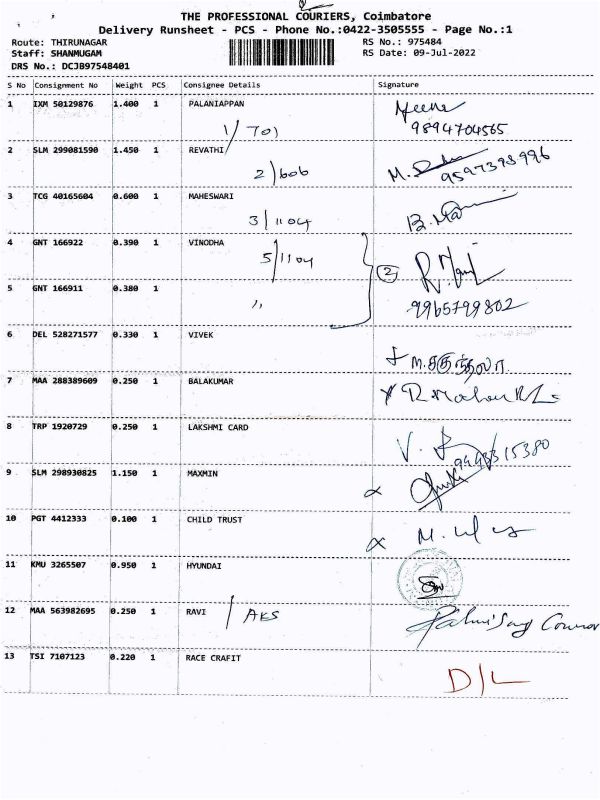 THE PROFESSIONAL COURIERS, Coimbatore
Delivery Runsheet - PCS - Phone No.:0422-3505555 - Page No.:1
Route: THIRUNAGAR
Staff: SHANMUGAM
DRS No.: DCJB97548401
RS No.: 975484
RS Date: 09-Jul-2022
S No Consignment No Weight PCS Consignee Details Signature
1 IXM 50129876 1.400 1 PALANIAPPAN
1/701
9894704565
2 SLM 299081590 1.450 1 REVATHI
2/606
9597398996
3 TCG 40165604 0.600 1 MAHESWARI
3/1104
4 GNT 166922 0.390 1 VINODHA
5/1104
2
5 GNT 166911 0.380 1
"
9965799802
6 DEL 528271577 0.330 1 VIVEK
7 MAA 288389609 0.250 1 BALAKUMAR
8 TRP 1920729 0.250 1 LAKSHMI CARD
9443315380
9 SLM 298930825 1.150 1 MAXMIN
10 PGT 4412333 0.100 1 CHILD TRUST
11 KMU 3265507 0.950 1 HYUNDAI
12 MAA 563982695 0.250 1 RAVI / AKS
13 TSI 7107123 0.220 1 RACE CRAFIT
D/L